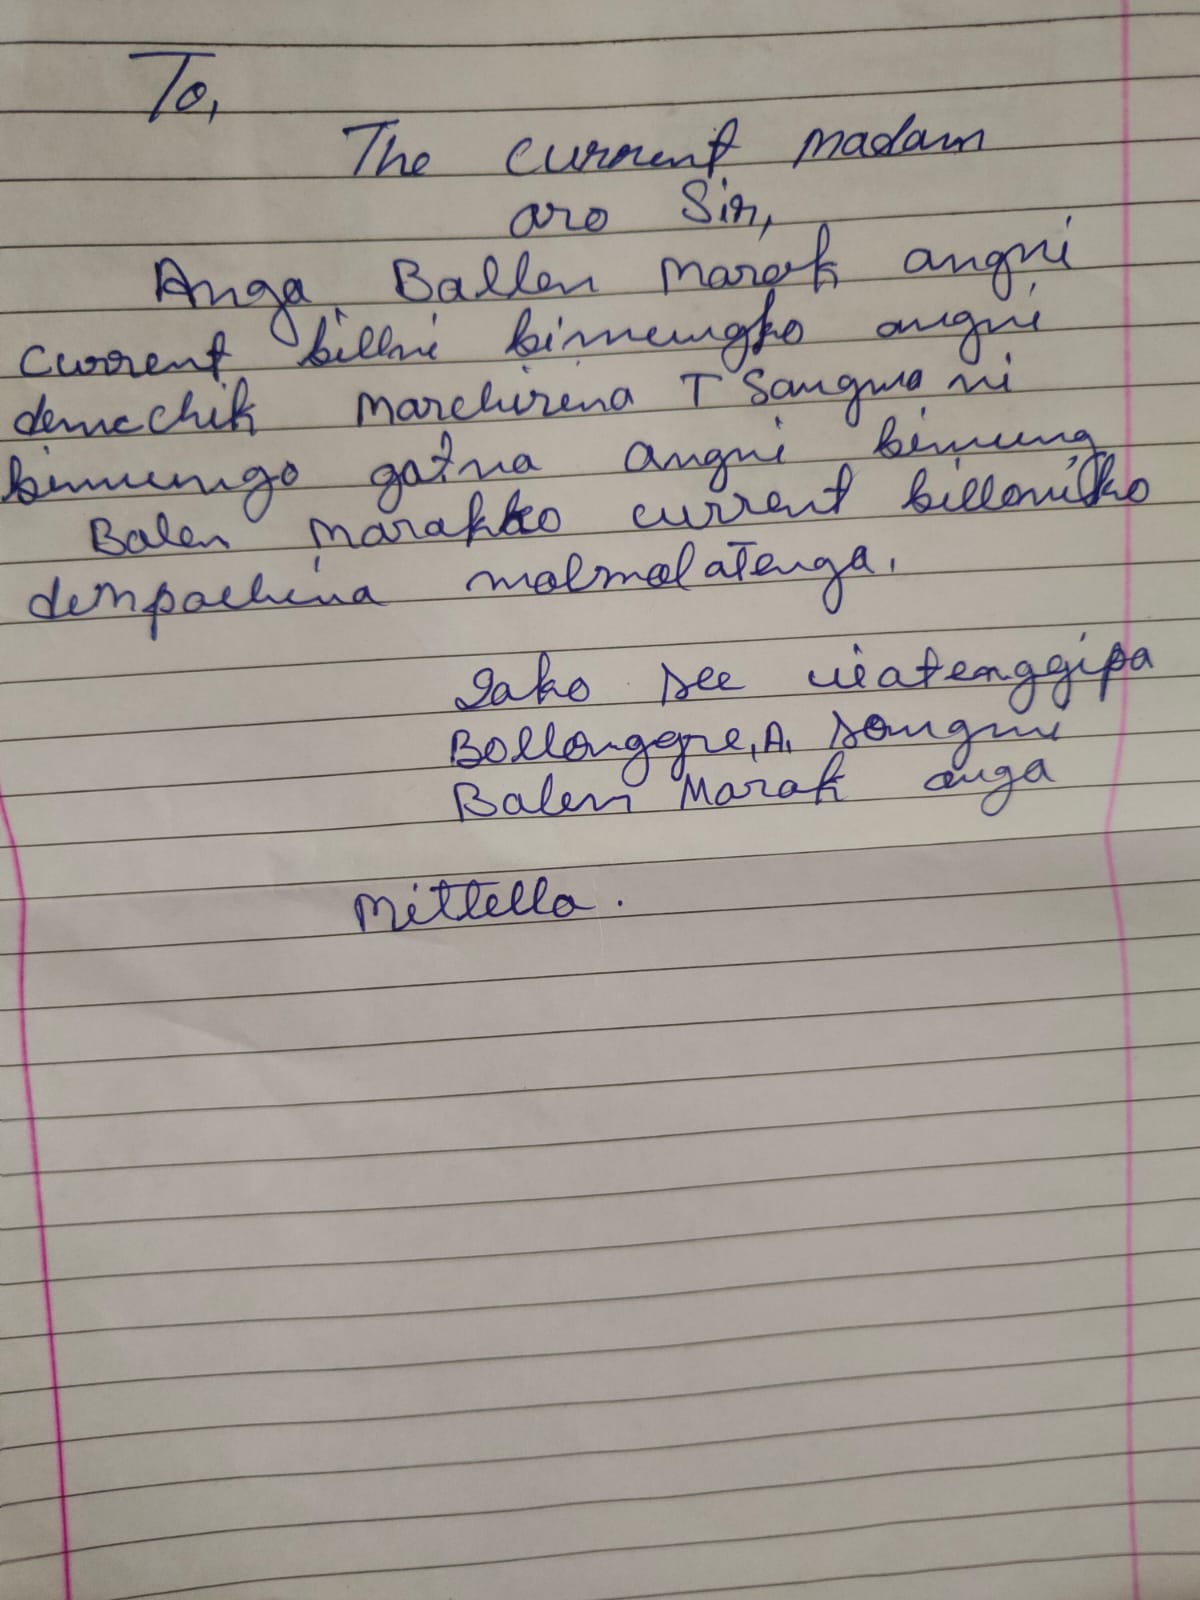 To,
The current madam
aro Sir,
Anga Ballen Marak angni
current billni bimungko angni
demechik Marchirena T Sangma ni
bimungo gatna angni bimung
Balen Marakko current billoniko
denpachina molmolatenga.
Iako see watenggipa
Bollonggre, A. Songni
Balen Marak anga
Mittella.